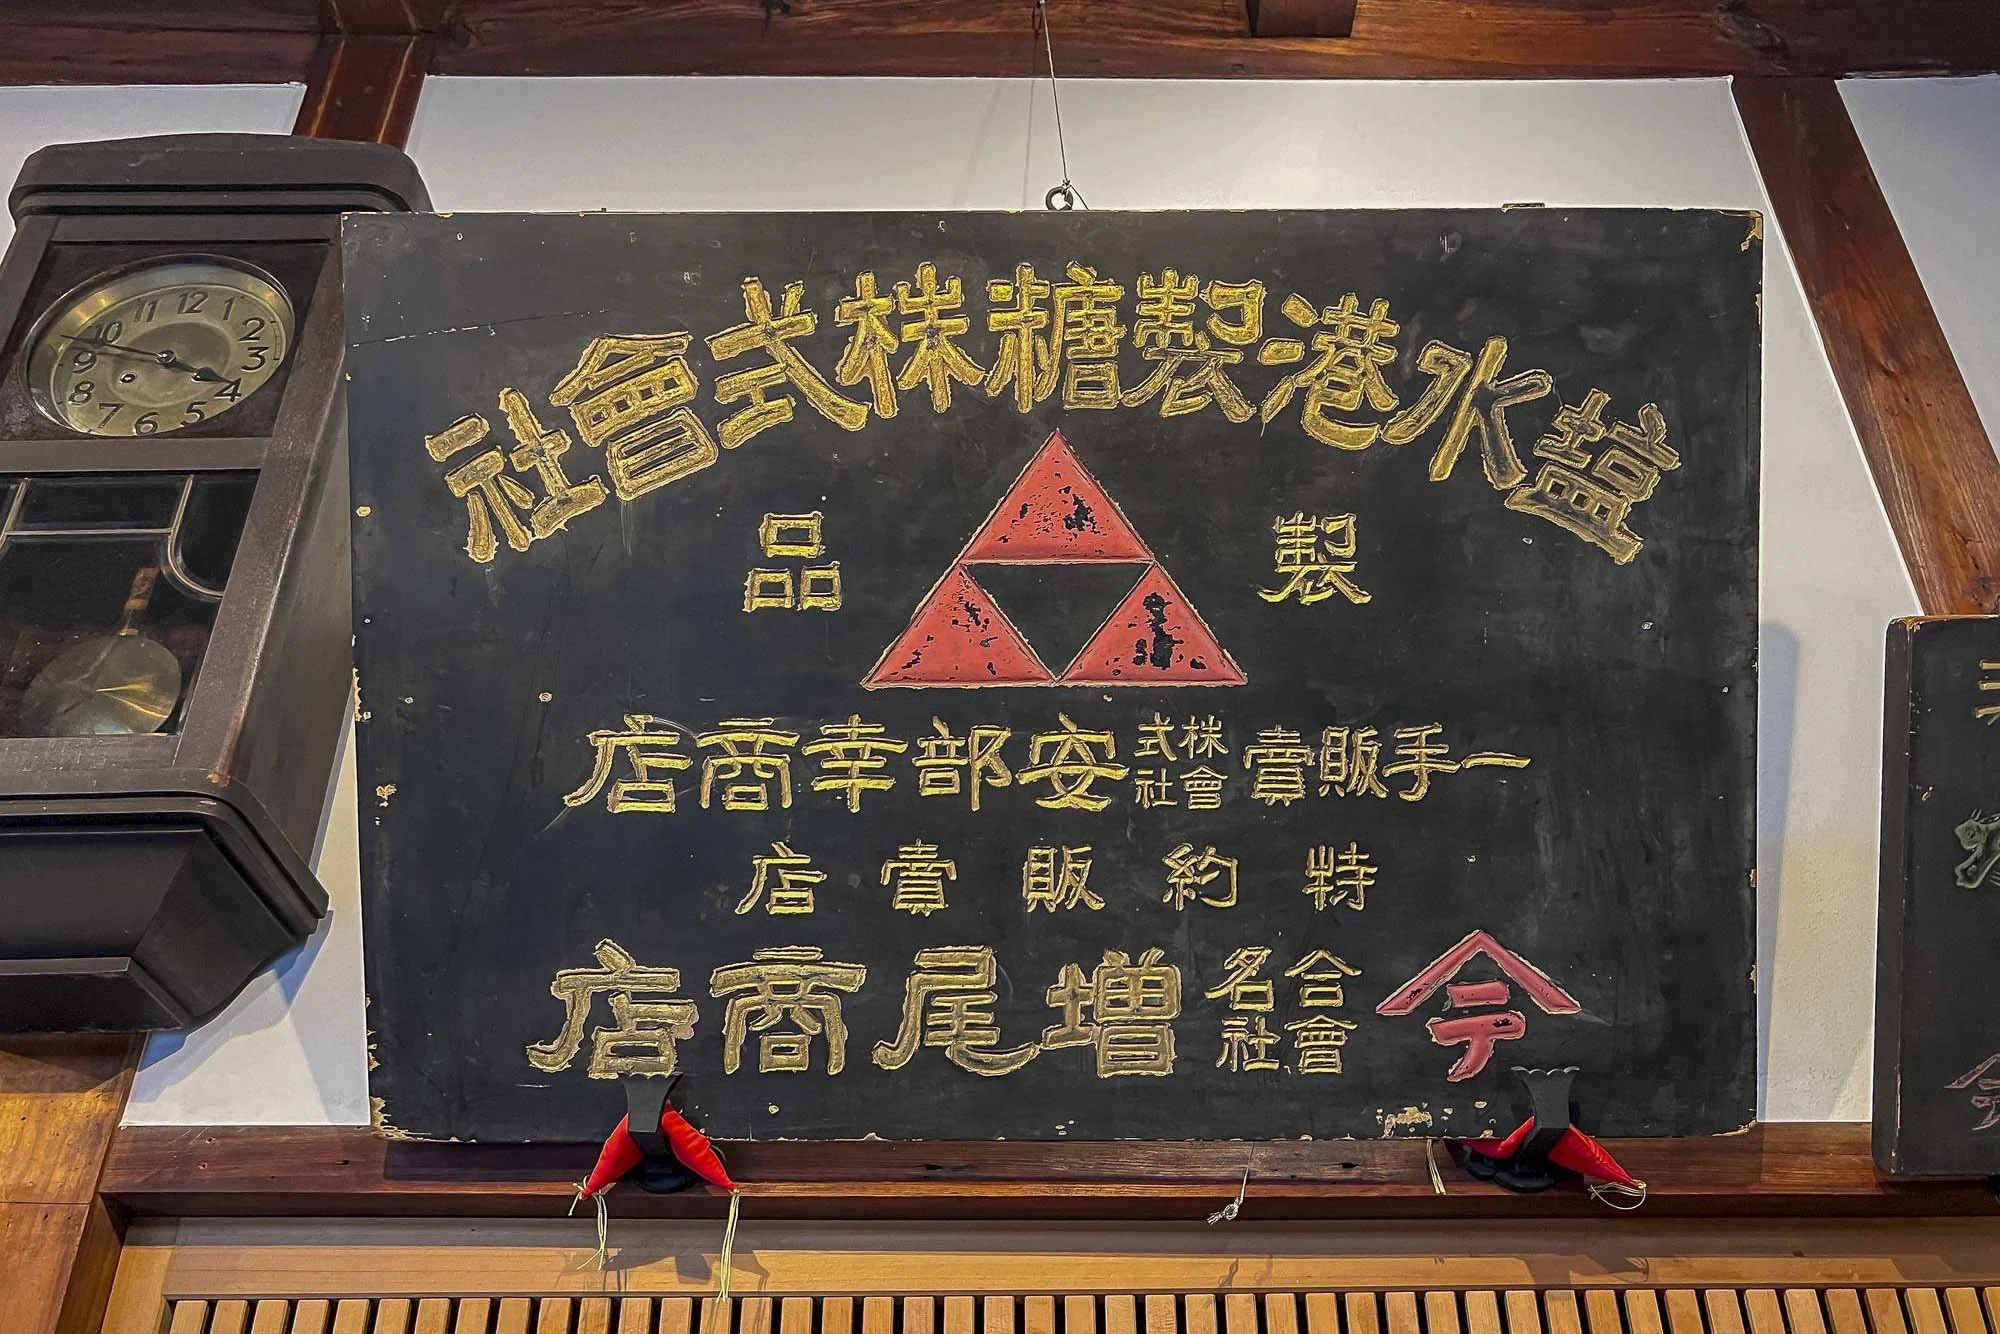 鹽水港製糖株式會社
製品
一手販賣株式會社安部幸商店
特約販賣店
今合名會社増尾商店
12
1
2
3
4
5
6
7
8
9
10
11